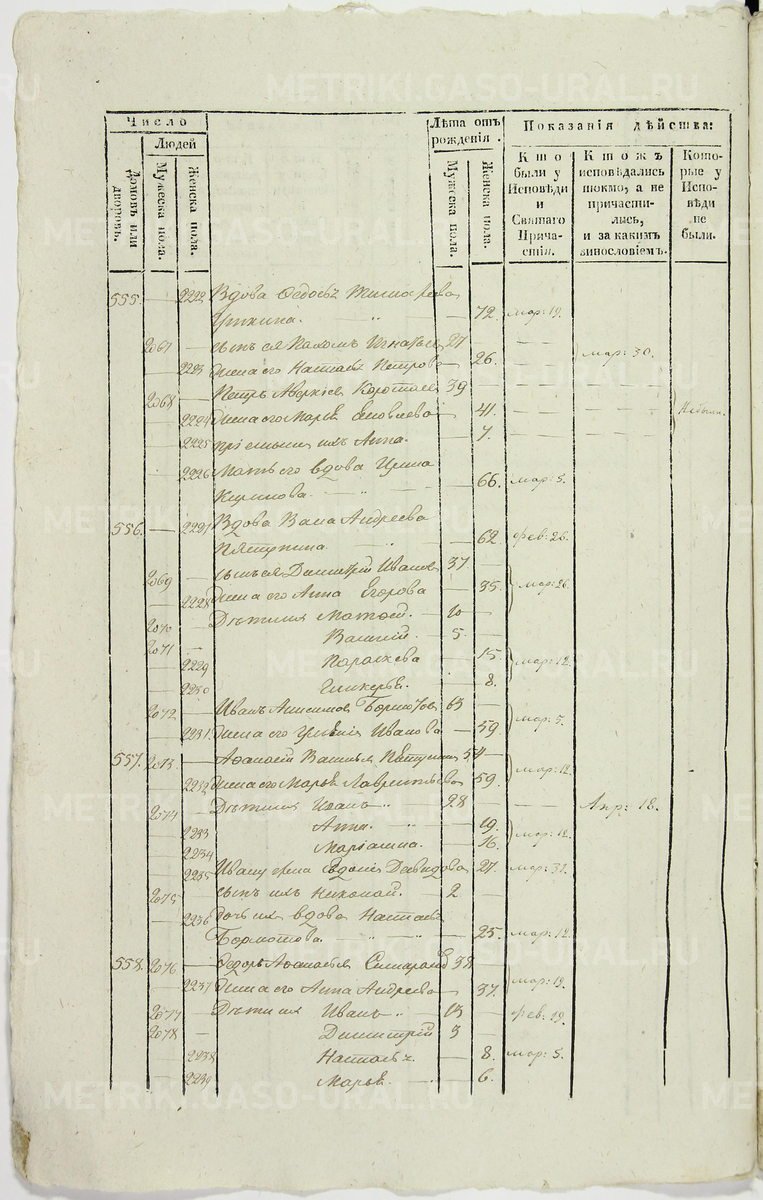 METRIKI.GASO-URAL.RU
Число
Людей
Домовъ или дворовъ.
Мужеска пола.
Женска пола.
Лѣта отъ рожденія.
Мужеска пола.
Женска пола.
Показанія дѣйства:
Кто были у Исповѣди и Святаго Причастія.
Ктожъ исповѣдались токмо, а не причастились, и за какимъ винословіемъ.
Которые у Исповѣди не были.
555. — 2222 Вдова
— „ — 72. мар: 19.
2067 — сынъ ея Пахомъ 27 —
— 2223 жена его Настасья Петрова — 26. мар: 30.
2068 — Петръ Аверкіевъ 39 —
— 2224 жена его Марья Яковлева — 41. не были.
— 2225 ихъ Анна. — 7.
— 2226 Мать его вдова Ирина
— „ — 66. мар: 5.
556. — 2227 Вдова Васса Андреева
„ — 62. фев: 26.
2069 — сынъ ея Димитрій Ивановъ 37 —
— 2228 жена его Анна Егорова — 35. мар: 26.
2070 — Дѣти ихъ 10 —
2071 — Василій. 5. —
— 2229 Параскева 15.
— 2230 Гликерья. 8. мар: 12.
2072 — Иванъ 63 —
— 2231 жена его Ивановна — 59. мар: 5.
557. 2073 — Афанасій Васильевъ 54 —
— 2232 жена его Марья Лаврентьева 59. мар: 12.
2074 — Дѣти ихъ Иванъ „ 28 — Апр: 18.
— 2233 Анна. „ — 19.
— 2234 Маріанна. — 16. мар: 12.
— 2235 Ивану жена Давидова 27. мар: 31.
2075 — сынъ ихъ Николай. 2
— 2236 дочь ихъ вдова Настасья
— 25. мар: 12.
558. 2076 — Федоръ Афанасьевъ 38. —
— 2237 жена его Анна Андреева — 37. мар: 19.
2077 — Дѣти ихъ Иванъ „ 13 — фев: 19.
2078 — Димитрій 3 —
— 2238 Настасья. — 8. мар: 5.
— 2239 Марья. — 6.